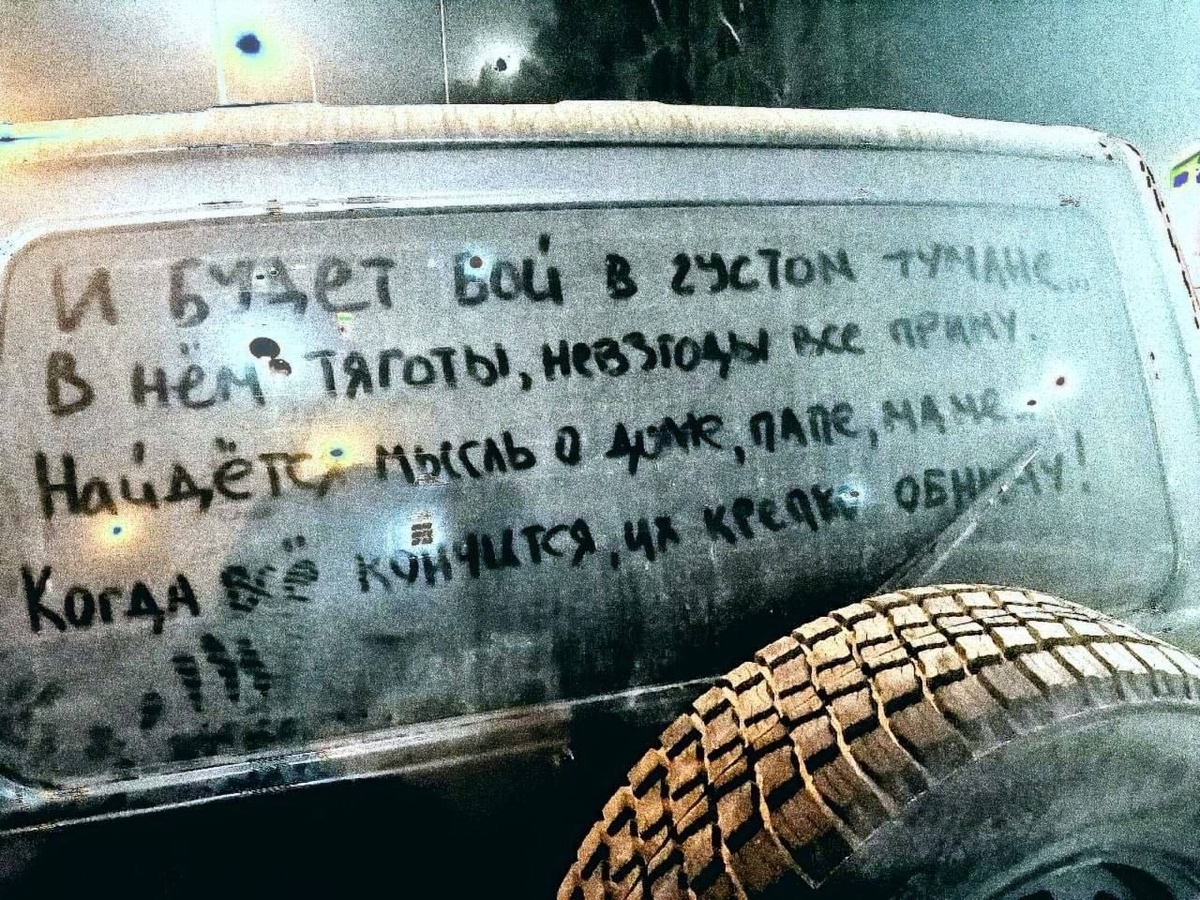 И будет бой в густом тумане...
В нём тяготы, невзгоды все приму.
Найдётся мысль о доме, папе, маме...
Когда всё кончится, их крепко обниму!